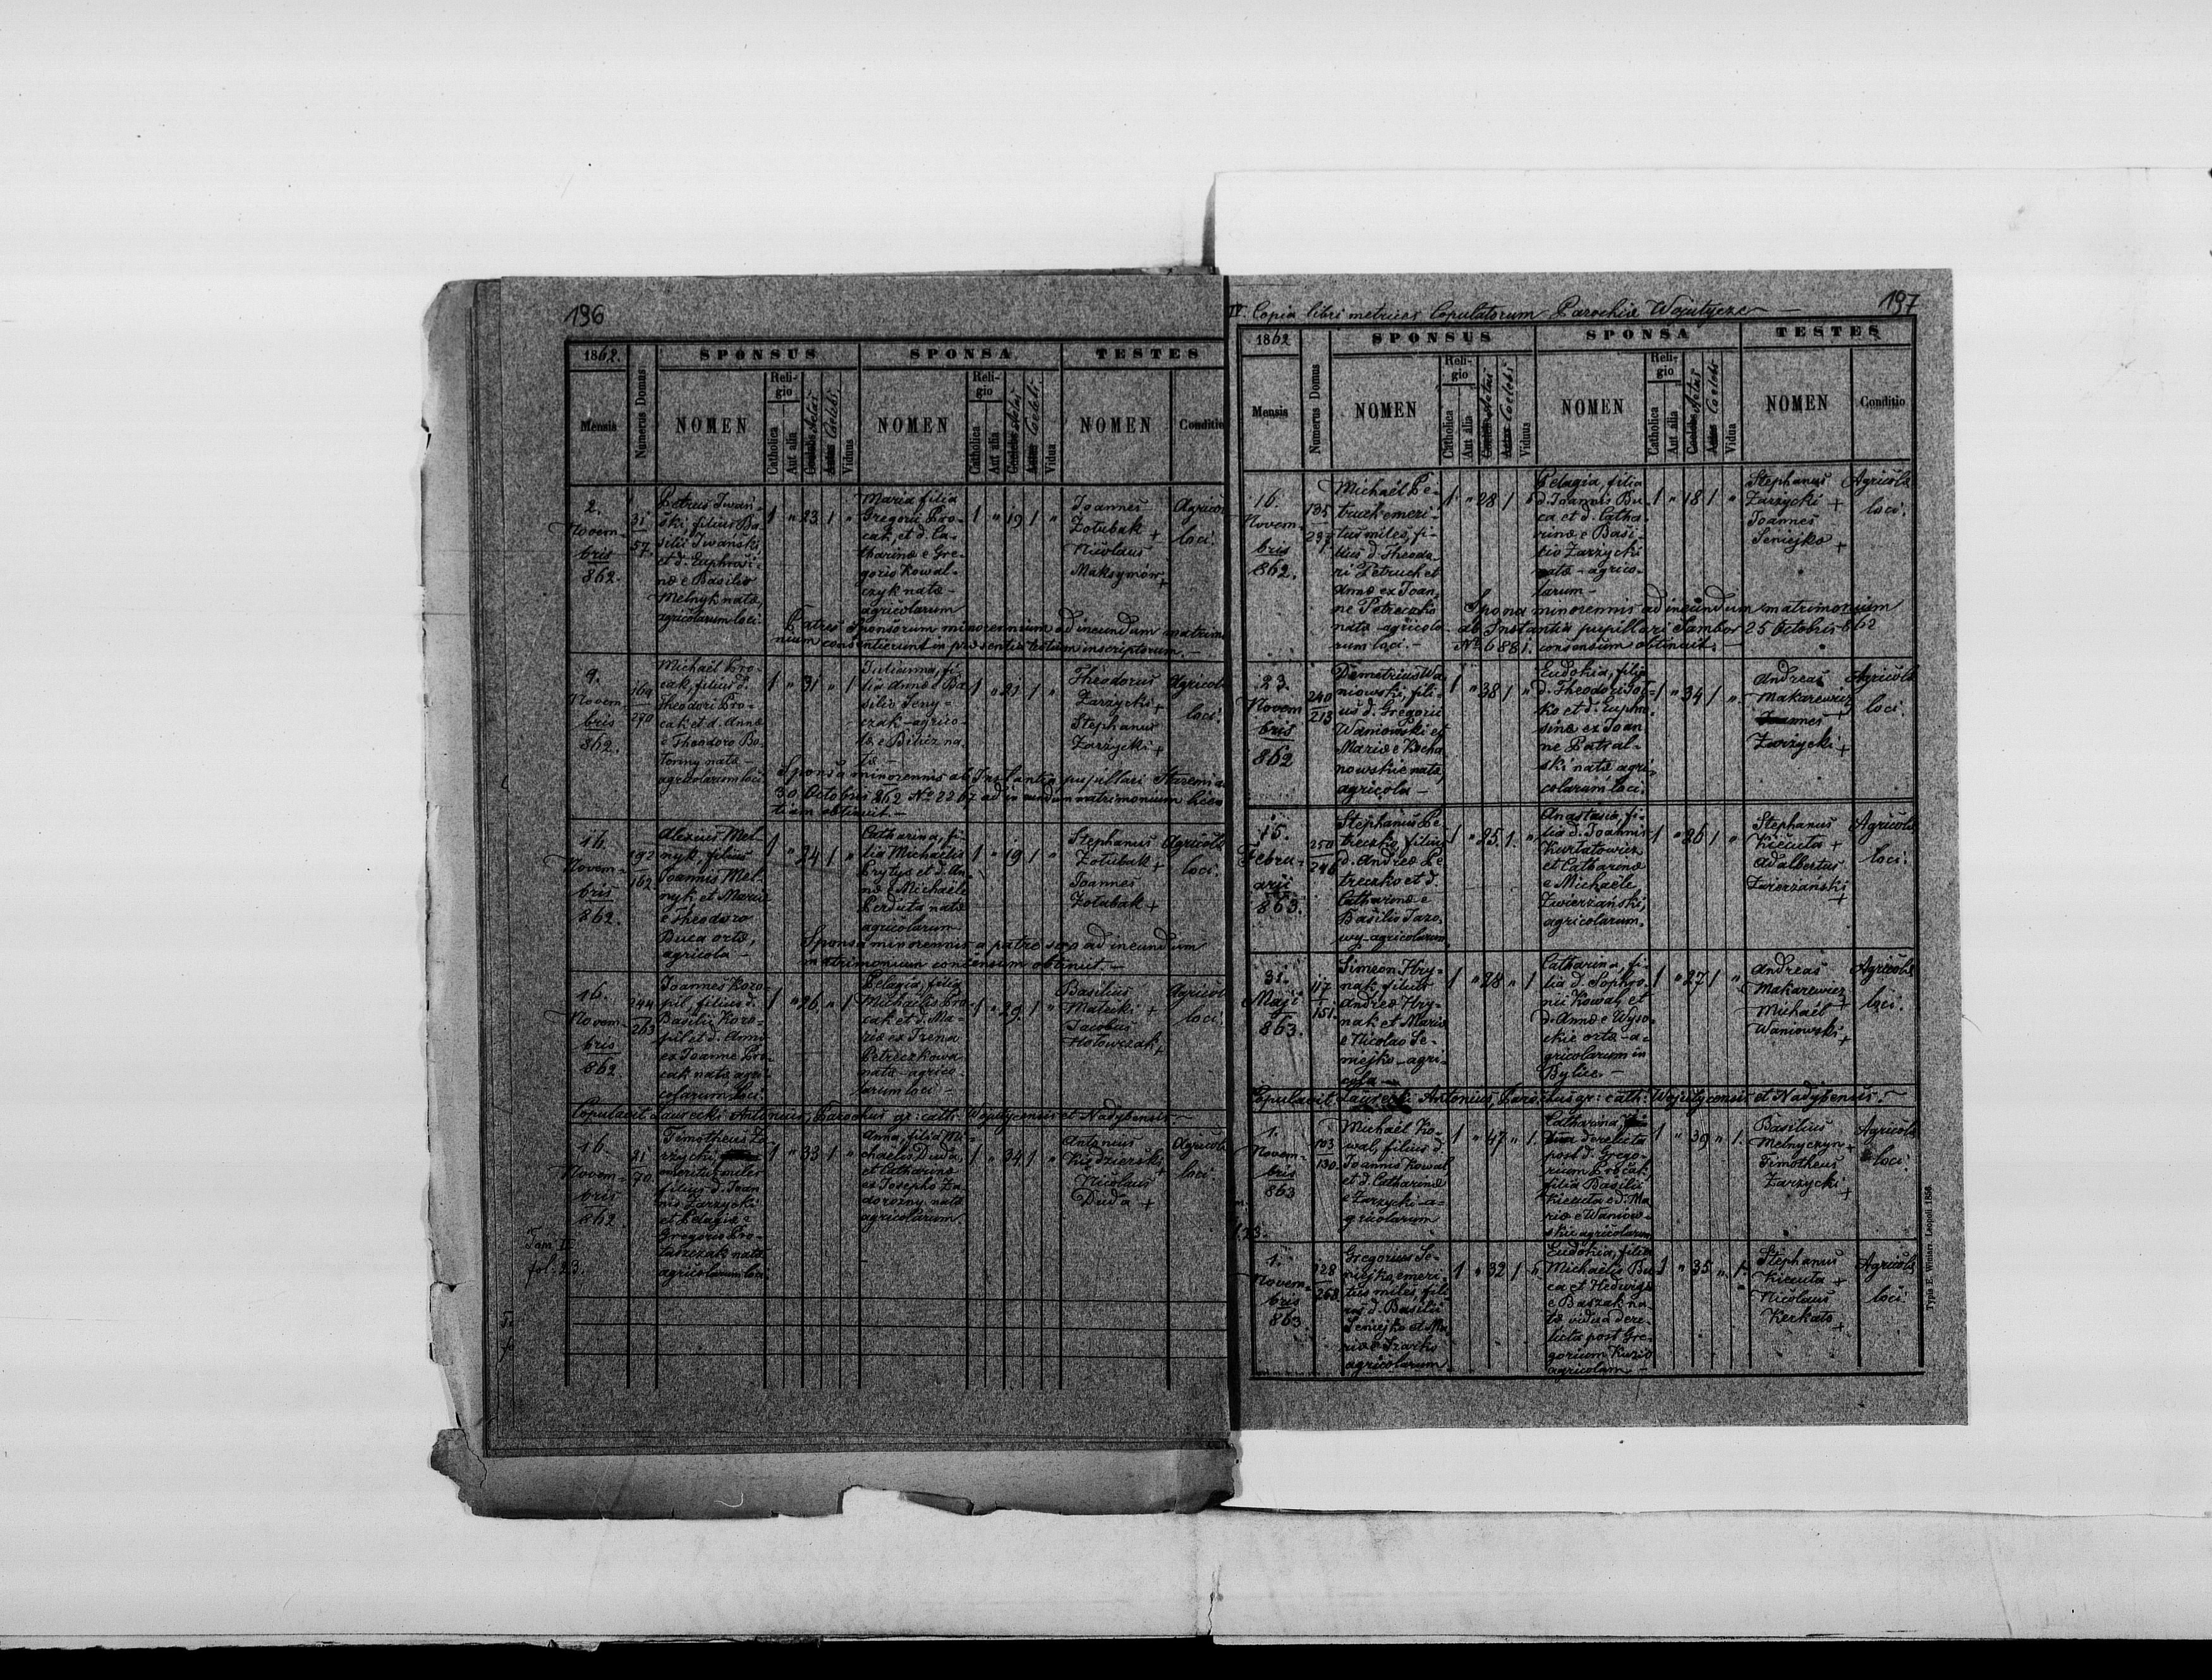 196
1862.
SPONSUS
SPONSA
TESTES
Mensis
Numerus Domus
NOMEN
Religio
Catholica
Aut alia
Aetas
Coelebs
Vidua
NOMEN
Religio
Catholica
Aut alia
Aetas
Coelebs
Vidua
NOMEN
Conditio
2.
Novem-
bris
862.
31
57.
Petrus Iwań-
ski, filius Ba-
silii Iwański
et d. Euphrosi-
næ e Basilio
Melnyk natæ,
agricolarum loci.
1 " 23 1 "
Maria filia
Gregorii Pro-
cak, et d. Ca-
tharinæ e Gre-
gorio Kowal-
czyk natæ -
agricolarum
1 " 19 1 "
Joannes
Zołubak +
Nicolaus
Maksymów +
Agricolæ
loci.
Patres Sponsorum minorennium ad ineundum matrimo-
nium consentierunt in præsentia testium inscriptorum. -
9.
Novem-
bris
862.
169
270
Michaël Pro-
cak, filius d.
Theodori Pro-
cak et d. Annæ
e Theodoro Bo-
natæ -
agricolarum loci
1 " 31 " 1
Julianna, fi-
lia Annæ e Ba-
silio Seny-
czak - agrico-
læ e Bilicz na-
tæ -
1 " 21 1 "
Theodorus
Zarzycki +
Stephanus
Zarzycki +
Agricolæ
loci.
Sponsa minorennis ab Instantia pupillari
30 Octobris 862 No 2267 ad ineundum matrimonium licen
tiam obtinuit. -
16.
Novem-
bris
862.
192
162
Alexius Mel-
nyk, filius
Joannis Mel-
nyk et Mariæ
e Theodoro
Buca ortæ,
agricola -
1 " 24 1 "
Catharina, fi-
lia Michaëlis
Prytys et d. An-
næ e Michaële
Perduta natæ
agricolarum
1 " 19 1 "
Stephanus
Zołubak +
Joannes
Zołubak +
Agricolæ
loci.
Sponsa minorennis a patre suo ad ineundum
matrimonium consensum obtinuit. -
16.
Novem-
bris
862
244
263
Joannes Koro-
pil, filius d.
Basilii Koro-
pil et d. Annæ
ex Joanne Pro-
cak natæ agri-
colarum loci.
1 " 26 " 1
Pelagia, filia
Michaelis Pro-
cak et d. Ma-
riæ ex Irena
Petreczkowa
natæ - agrico-
larum loci -
1 " 29 1 "
Basilius
Matecki +
Jacobus
Hołowczak +
Agricolæ
loci.
Copulavit Laurecki Antonius, Parochus gr: cath: Wojutycensis et Nadybensis. -
16.
Novem-
bris
862
81
70.
Timotheus Za-
rzycki,
emeritus miles
filius d. Joan-
nis Zarzycki
et Pelagiæ e
Gregorio Pro-
natæ
agricolarum loci
1 " 33 1 "
Anna, filia Mi-
chaëlis Duda,
et Catharinæ
ex Josepho Za-
dorożny natæ
agricolarum
1 " 34 1 "
Antonius
Kudzierski +
Nicolaus
Duda +
Agricolæ
loci.
Tom II
fol: 23.
IV. Copia libri metrices Copulatorum Parochiæ Wojutycze -
197
1862
SPONSUS
SPONSA
TESTES
Mensis
Numerus Domus
NOMEN
Religio
Catholica
Aut alia
Aetas
Coelebs
Vidua
NOMEN
Religio
Catholica
Aut alia
Aetas
Coelebs
Vidua
NOMEN
Conditio
16.
Novem-
bris
862.
135
237
Michaël Pe-
truch emeri-
tus miles, fi-
lius d. Theodo-
ri Petruch et
Annæ ex Joan-
ne Petreczko
natæ - agricola-
rum loci. -
1 " 28 1 "
Pelagia, filia
d. Joannis Bu-
ca, et d. Catha-
rinæ e Basi-
lio Zarzycki
natæ - agrico-
larum -
1 " 18 1 "
Stephanus
Zarzycki +
Joannes
Seniejko +
Agricolæ
loci.
Sponsa minorennis ad ineundum matrimonium
ab Instantia pupillari Sambor 25 Octobris 862
No 6881. consensum obtinuit. -
23.
Novem
bris
862
240
213
Demetrius Wa-
niowski, fili-
us d. Gregorii
Waniowski et
Mariæ e Kocha
nowskie natæ,
agricola -
1 " 38 1 "
Eudokia, filia
d. Theodori
ko et d. Euphro-
sinæ ex Joan
ne Patral-
ski natæ agri-
colarum loci.
1 " 34 1 "
Andreas
Makarewicz +
Joannes
Zarzycki +
Agricolæ
loci.
15.
Febru-
arii
863.
250
246
Stephanus Pe-
treczko, filius
d. Andreæ Pe
treczko et d.
Catharinæ e
Basilio Jaro-
wy - agricolarum
1 " 25 1 "
Anastasia, fi-
lia d. Joannis
Kurłatowicz
et Catharinæ
e Michaële
Zwierzański,
agricolarum.
1 " 26 1 "
Stephanus
Kicuta +
Adalbertus
Zwierzański +
Agricolæ
loci.
31.
Maji
863.
117
151.
Simeon Hry-
nak filius
Andreæ Hry-
nak et Mariæ
e Nicolao Se-
niejko - agri-
cola -
1 " 28 " 1
Catharina, fi-
lia d. Sophro-
nii Kowal, et
d. Annæ e Wyso-
ckie ortæ - a-
gricolarum in
Bylice -
1 " 27 1 "
Andreas
Makarewicz +
Michaël
Waniowski +
Agricolæ
loci.
Copulavit Laurecki Antonius, Parochus gr: cath: Wojutycensis et Nadybensis. -
1.
Novem-
bris
863
103
130.
Michaël Ko-
wal, filius d.
Joannis Kowal
et d. Catharinæ
e Zarzycki - a-
gricolarum
1 " 47 " 1.
Catharina,
derelicta
post d. Grego-
rium Procak
filia Basilii
Kicuta e d. Ma-
riæ e Waniow-
skie agricolarum
1 " 39 " 1.
Basilius
Melnyczyn +
Timotheus
Zarzycki +
Agricolæ
loci.
1.
Novem-
bris
863
128
268
Gregorius Se-
niejko, emeri-
tus miles, fili
us d. Basilii
Seniejko et Ma
riæ e Icarko
agricolarum
1 " 32 1 "
Eudokia, filia
Michaëlis Bu
ca et Hedwigis
e Baszak na-
tæ vidua dere-
licta post Gre-
gorium Kuzio
agricolam -
1 " 35 " 1.
Stephanus
Kicuta +
Nicolaus
Keckało +
Agricolæ
loci.
Typis E. Winiarz. Leopoli 1856.